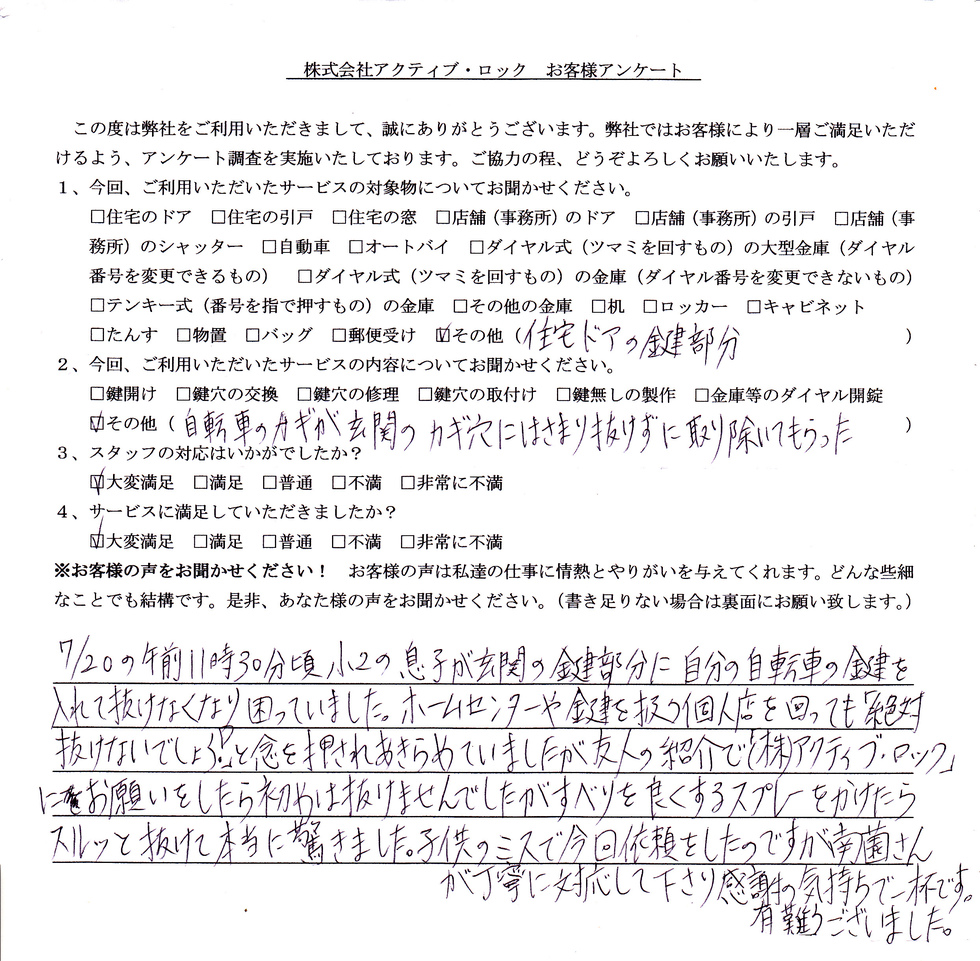 株式会社アクティブ・ロック　お客様アンケート
この度は弊社をご利用いただきまして、誠にありがとうございます。弊社ではお客様により一層ご満足いただ
けるよう、アンケート調査を実施いたしております。ご協力の程、どうぞよろしくお願いいたします。
1、今回、ご利用いただいたサービスの対象物についてお聞かせください。
□住宅のドア　□住宅の引戸　□住宅の窓　□店舗（事務所）のドア　□店舗（事務所）の引戸　□店舗（事
務所）のシャッター　□自動車　□オートバイ　□ダイヤル式（ツマミを回すもの）の大型金庫（ダイヤル
番号を変更できるもの）　□ダイヤル式（ツマミを回すもの）の金庫（ダイヤル番号を変更できないもの）
□テンキー式（番号を指で押すもの）の金庫　□その他の金庫　□机　□ロッカー　□キャビネット
□たんす　□物置　□バッグ　□郵便受け　☑その他（住宅ドアの鍵部分）
2、今回、ご利用いただいたサービスの内容についてお聞かせください。
□鍵開け　□鍵穴の交換　□鍵穴の修理　□鍵穴の取付け　□鍵無しの製作　□金庫等のダイヤル開錠
☑その他（自転車のカギが玄関のカギ穴にはさまり抜けずに取り除いてもらった）
3、スタッフの対応はいかがでしたか？
☑大変満足　□満足　□普通　□不満　□非常に不満
4、サービスに満足していただきましたか？
☑大変満足　□満足　□普通　□不満　□非常に不満
※お客様の声をお聞かせください！　お客様の声は私達の仕事に情熱とやりがいを与えてくれます。どんな些細
なことでも結構です。是非、あなた様の声をお聞かせください。（書き足りない場合は裏面にお願い致します。）
7/20の午前11時30分頃小2の息子が玄関の鍵部分に自分の自転車の鍵を
入れて抜けなくなり困っていました。ホームセンターや鍵を扱う個人店を回っても「絶対
抜けないでしょう？」と念を押されあきらめていましたが友人の紹介で「(株)アクティブ・ロック」
にお願いをしたら初めは抜けませんでしたがすべりを良くするスプレーをかけたら
スルッと抜けて本当に驚きました。子供のミスで今回依頼をしたのですが南薗さん
が丁寧に対応して下さり感謝の気持ちで一杯です。
有難うございました。